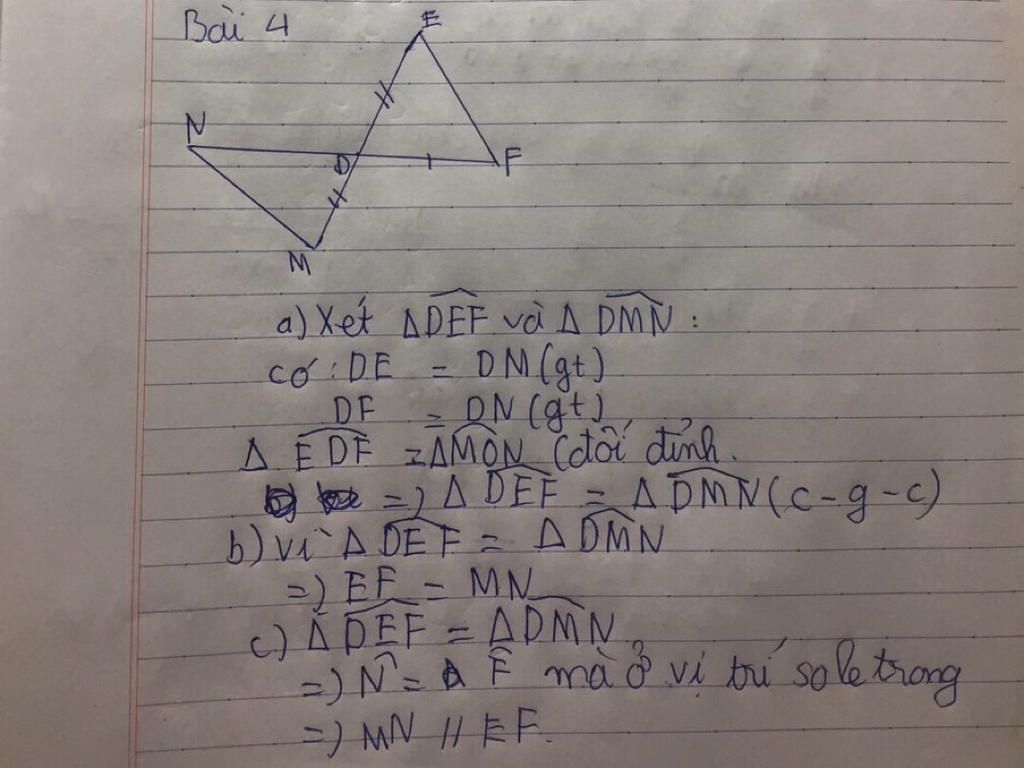 Bài 4
E
N
D
F
M
a) Xét Δ DEF và Δ DMN :
có : DE = DM (gt)
DF = DN (gt)
Δ EDF = Δ MON (đối đỉnh.
=) Δ DEF = Δ DMN (c-g-c)
b) vì Δ DEF = Δ DMN
=) EF = MN
c) Δ DEF = Δ DMN
=) N̂ = F̂ mà ở vị trí so le trong
=) MN // EF.